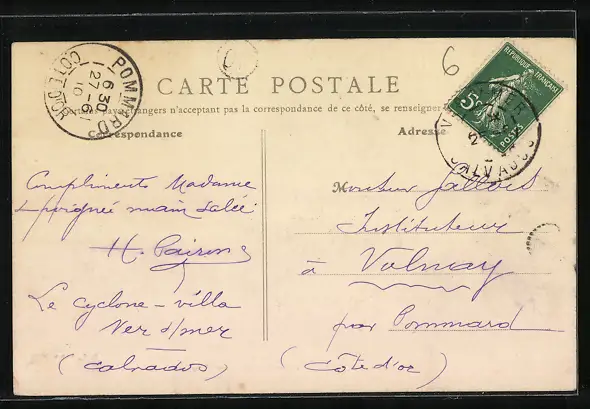 POMMARD
6 30
27 - 6
10
COTE D'OR
6
REPUBLIQUE FRANÇAISE
5c
POSTES
CALVADOS
CARTE POSTALE
pays étrangers n'acceptant pas la correspondance de ce côté, se renseigner
Correspondance
Adresse
Compliments Madame
poignée main
H. Pairons
Le Cyclone - villa
Ver s/mer
(Calvados)
Monsieur Jallois
Instituteur
à Volnay
par Pommard
(Côte d'or)